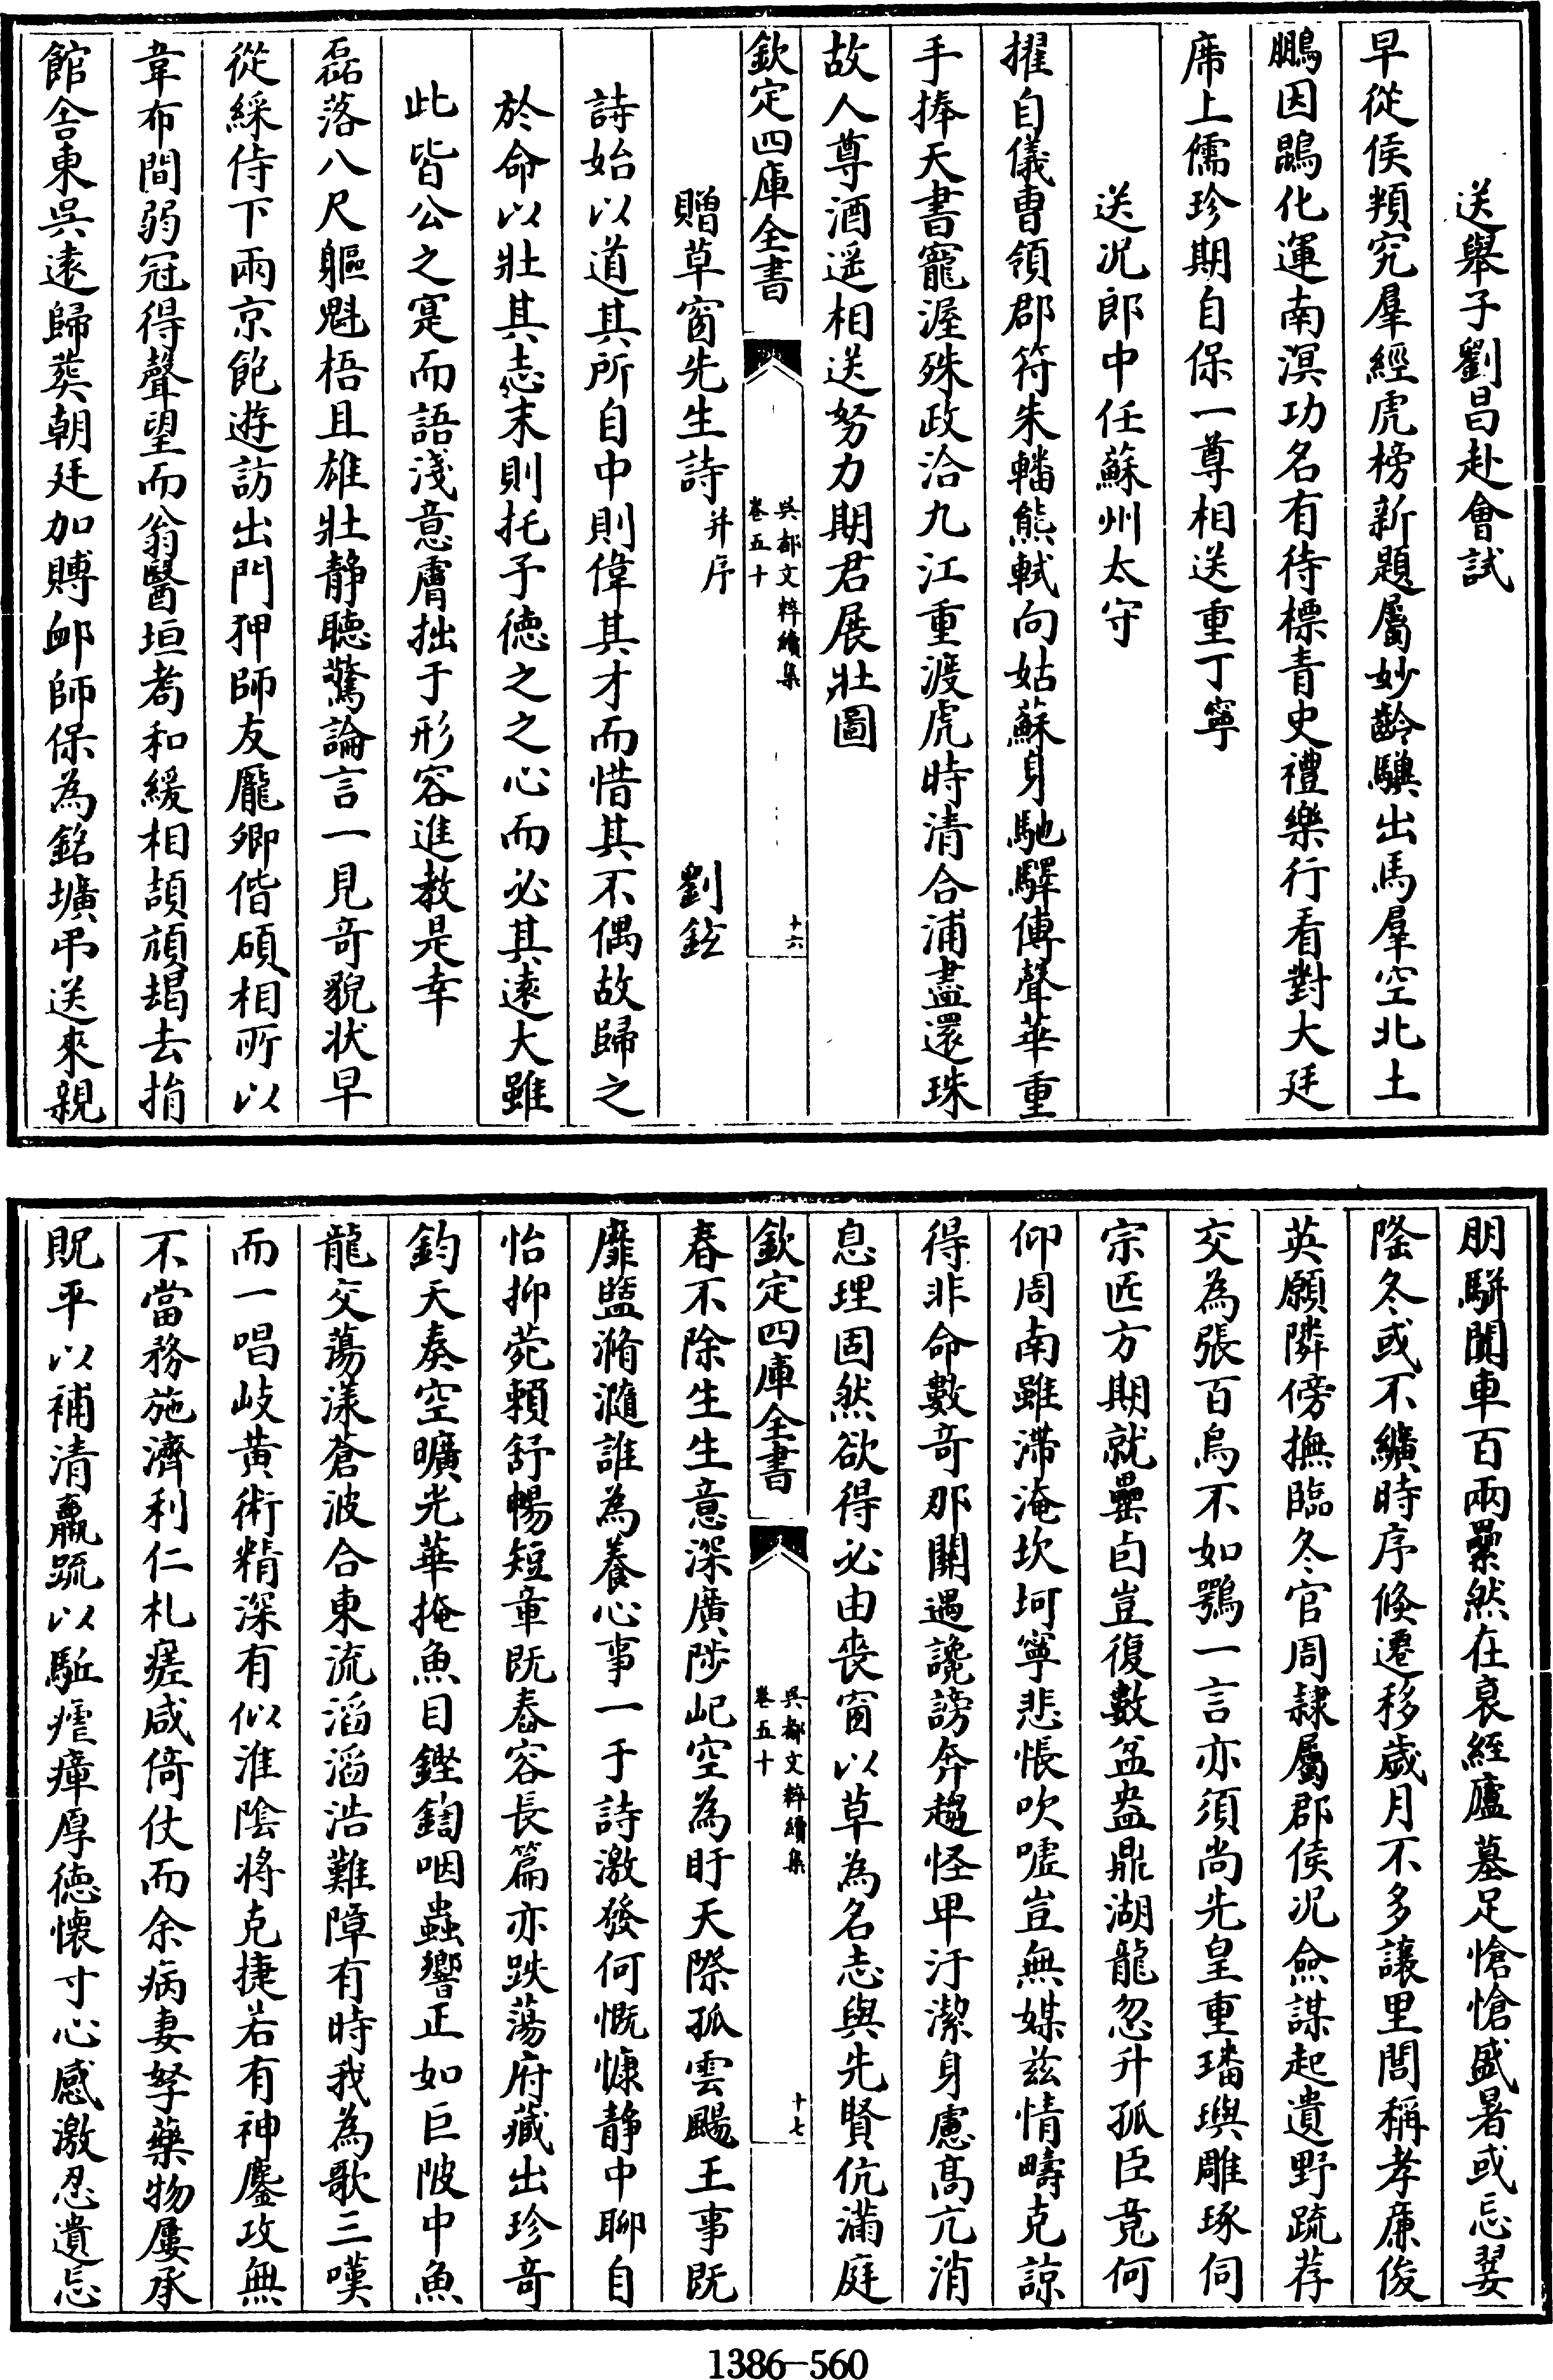 送舉子劉昌赴會試
早從侯頖究羣經虎榜新題屬妙齡驥出馬羣空北土
鵬因鷃化運南溟功名有待標青史禮樂行看對大廷
席上儒珍期自保一尊相送重丁寧
送况郎中任蘇州太守
擢自儀曹領郡符朱轓熊軾向姑蘇身馳驛傳聲華重
手捧天書寵渥殊政洽九江重渡虎時清合浦盡還珠
故人尊酒遥相送努力期君展壯圖
欽定四庫全書
吳都文粹續集
卷五十
十六
贈草窗先生詩并序
劉鉉
詩始以道其所自中則偉其才而惜其不偶故歸之
於命以壯其志末則托予德之之心而必其遠大雖
此皆公之寔而語淺意膚拙于形容進教是幸
磊落八尺軀魁梧且雄壯静聽驚論言一見竒貌狀早
從綵侍下兩京飽遊訪出門狎師友龎卿偕碩相所以
韋布間弱冠得聲望而翁醫垣耆和緩相頡頏朅去捐
館舍東吳遠歸葬朝廷加賻䘏師保為銘壙弔送來親
朋駢闐車百兩纍然在哀絰廬墓足愴愴盛暑或忘翣
隆冬或不纊時序倐遷移歲月不多讓里閭稱孝廉俊
英願隣傍撫臨冬官周隷屬郡侯况僉謀起遺野疏荐
交為張百鳥不如鶚一言亦須尚先皇重璠璵雕琢伺
宗匹方期就罍卣豈復數盆盎鼎湖龍忽升孤臣竟何
仰周南雖滯淹坎坷寧悲悵吹嘘豈無媒兹情疇克諒
得非命數竒那關遇讒謗奔趨怪卑汙潔身慮高亢消
息理固然欲得必由喪窗以草為名志與先賢伉滿庭
欽定四庫全書
吳都文粹續集
卷五十
十七
春不除生生意深廣陟屺空為盱天際孤雲颺王事既
靡盬滫瀡誰為養心事一于詩激發何慨慷静中聊自
怡抑菀賴舒暢短章既舂容長篇亦跌蕩府藏出珍竒
鈞天奏空曠光華掩魚目鏗鍧咽蟲響正如巨陂中魚
龍交蕩漾蒼波合東流滔滔浩難障有時我為歌三嘆
而一唱岐黃術精深有似淮陰將克捷若有神鏖攻無
不當務施濟利仁札瘥咸倚仗而余病妻孥藥物屢承
貺平以補清羸疏以駈瘧瘴厚徳懷寸心感激忍遺忘
1386—560